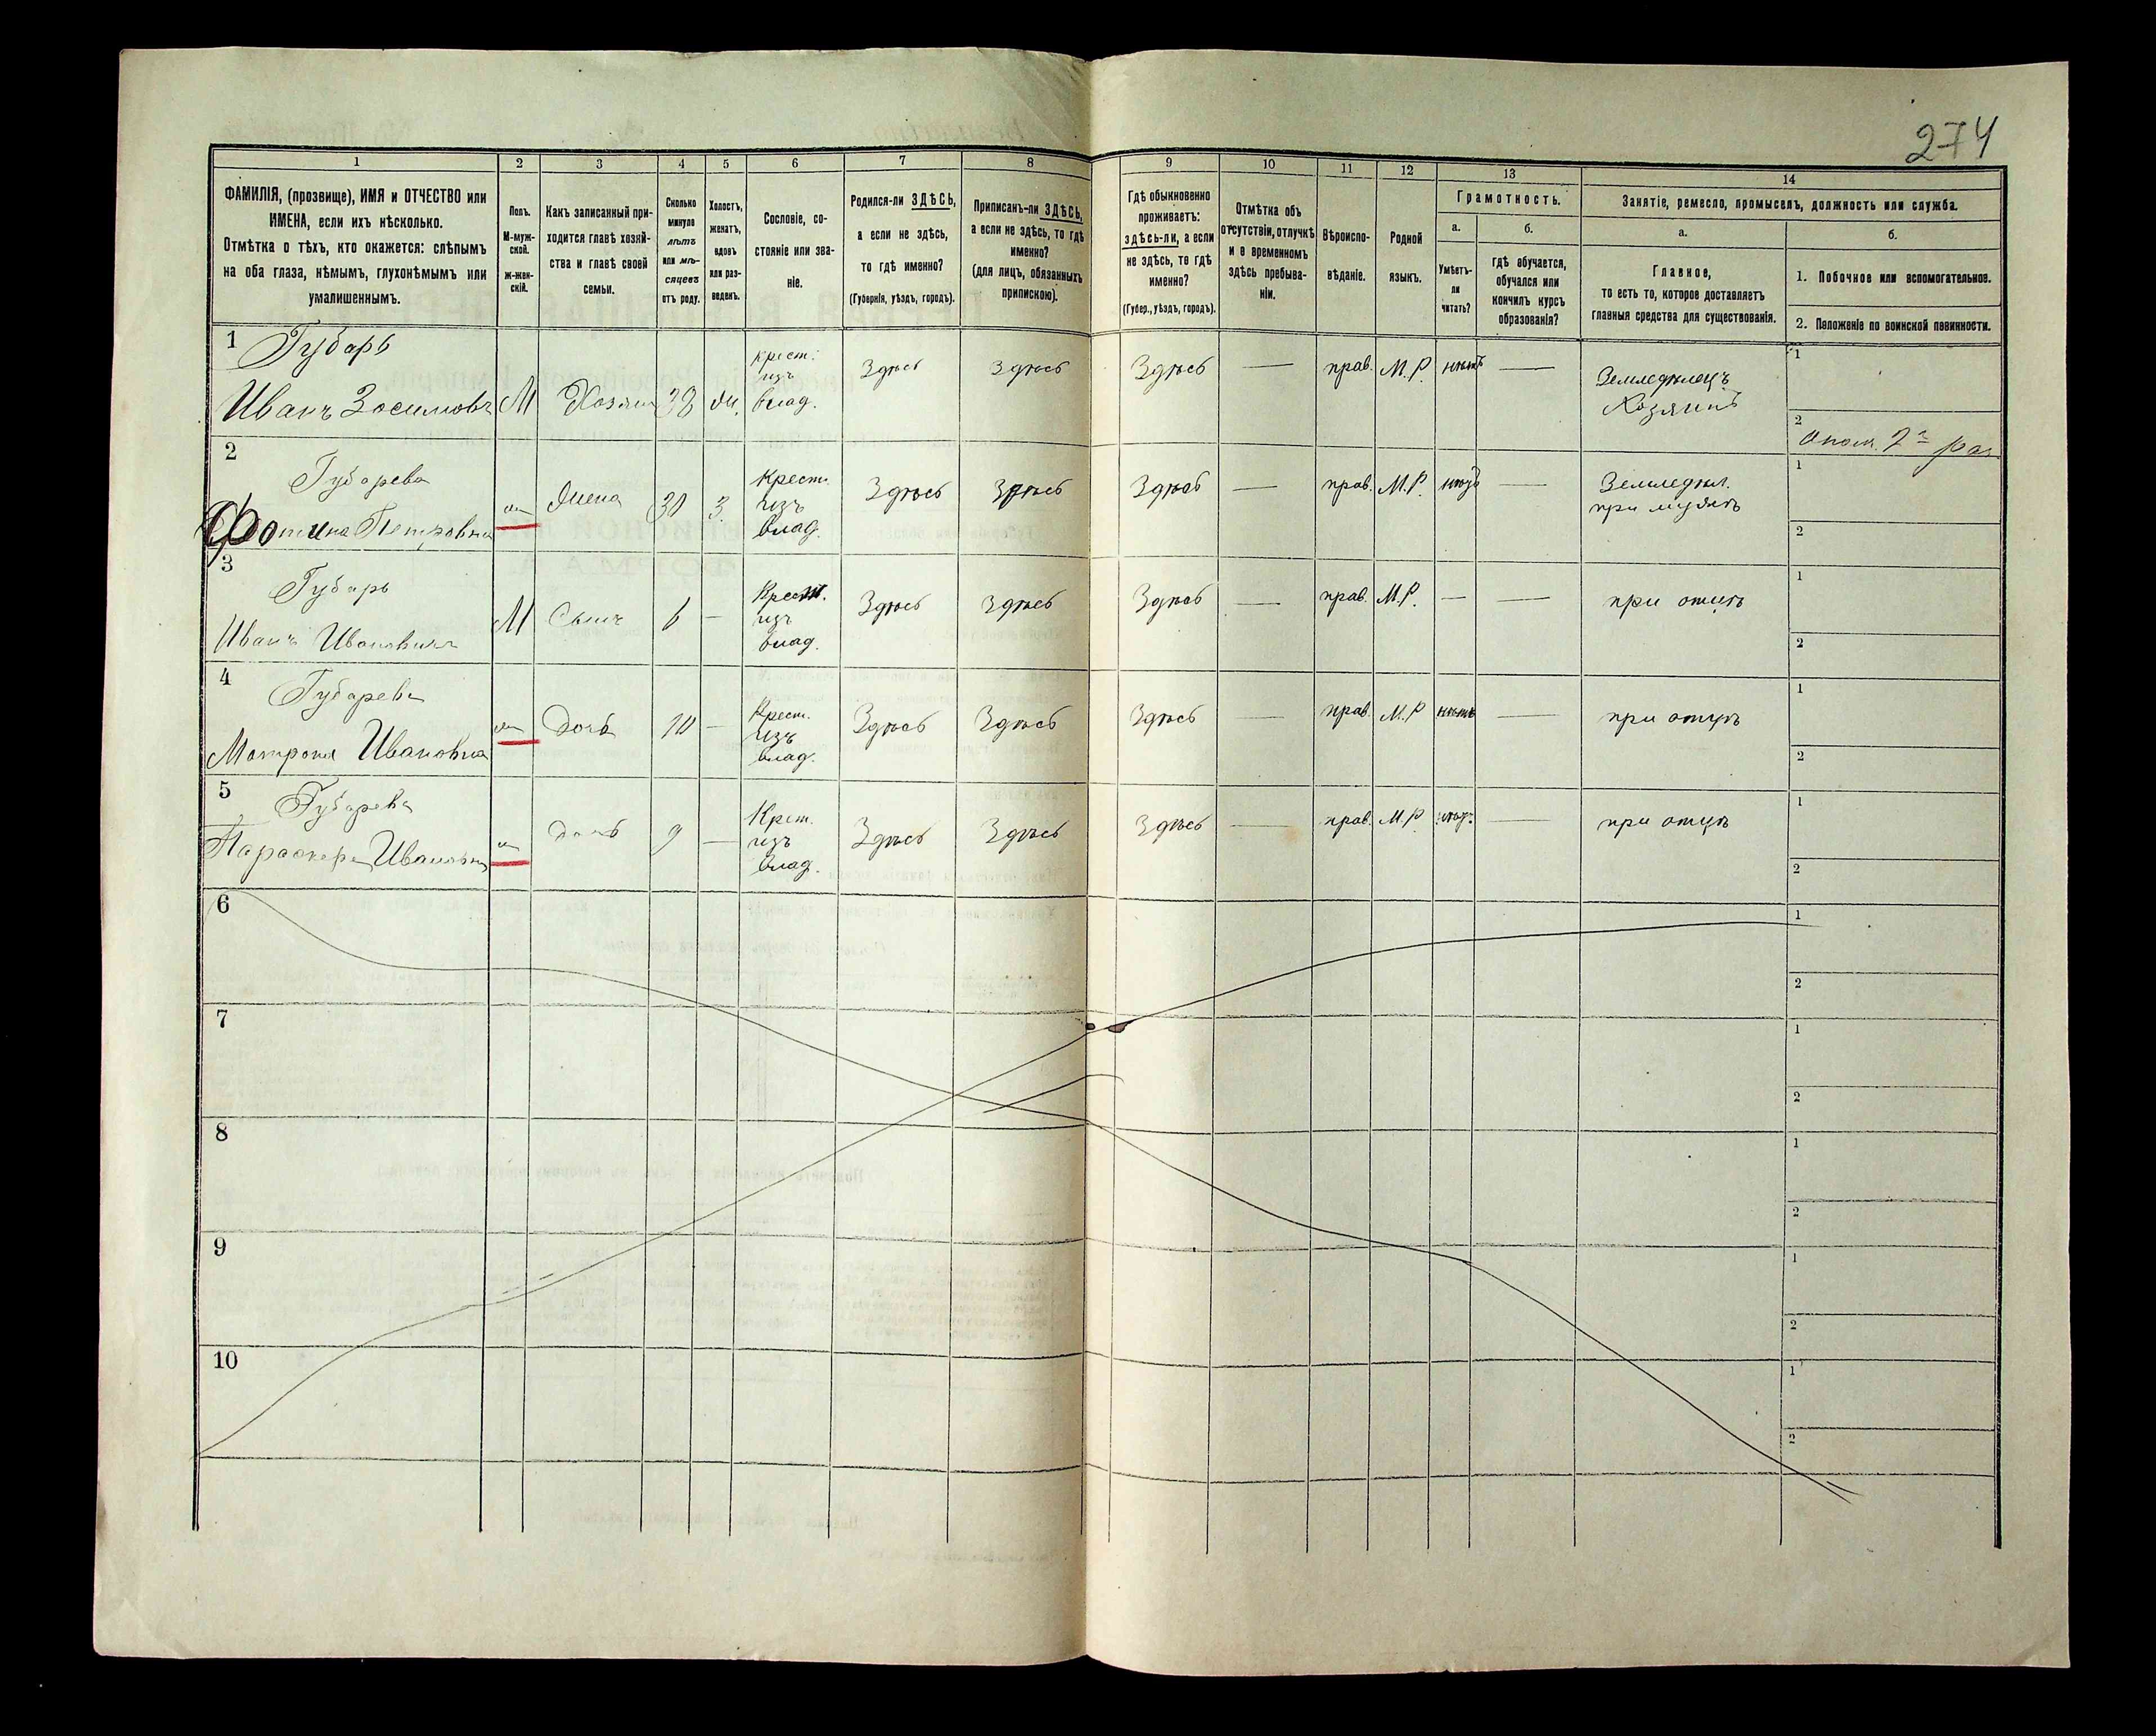 274
1
2
3
4
5
6
7
8
9
10
11
12
13
14
ФАМИЛІЯ, (прозвище), ИМЯ и ОТЧЕСТВО или
ИМЕНА, если ихъ нѣсколько.
Отмѣтка о тѣхъ, кто окажется: слѣпымъ
на оба глаза, нѣмымъ, глухонѣмымъ или
умалишеннымъ.
Полъ.
М-муж-
ской.
ж-жен-
скій.
Какъ записанный при-
ходится главѣ хозяй-
ства и главѣ своей
семьи.
Сколько
минуло
лѣтъ
или мѣ-
сяцевъ
отъ роду.
Холостъ,
женатъ,
вдовъ
или раз-
веденъ.
Сословіе, со-
стояніе или зва-
ніе.
Родился-ли ЗДѢСЬ,
а если не здѣсь,
то гдѣ именно?
(Губернія, уѣздъ, городъ).
Приписанъ-ли ЗДѢСЬ,
а если не здѣсь, то гдѣ
именно?
(для лицъ, обязанныхъ
припискою).
Гдѣ обыкновенно
проживаетъ:
здѣсь-ли, а если
не здѣсь, то гдѣ
именно?
(Губер., уѣздъ, городъ).
Отмѣтка объ
отсутствіи, отлучкѣ
и о временномъ
здѣсь пребыва-
ніи.
Вѣроиспо-
вѣданіе.
Родной
языкъ.
Грамотность.
а.
Умѣетъ-
ли
читать?
б.
Гдѣ обучается,
обучался или
кончилъ курсъ
образованія?
Занятіе, ремесло, промыселъ, должность или служба.
а.
Главное,
то есть то, которое доставляетъ
главныя средства для существованія.
б.
1. Побочное или вспомогательное.
2. Положеніе по воинской повинности.
1 Губарь
Иванъ Зосимовъ М Хозяин 38 ж. крест. изъ влад. Здѣсь Здѣсь Здѣсь — прав. М.Р. нѣтъ — Земледѣлецъ Хозяинъ 1
2 Опол. 2 раз
2 Губарева
Фотина Петровна ж Жена 30 З. Крест. изъ влад. Здѣсь Здѣсь Здѣсь — прав. М.Р. нѣтъ — Земледѣл. при мужѣ 1
2
3 Губарь
Иванъ Ивановичъ М Сынъ 6 — Крест. изъ влад. Здѣсь Здѣсь Здѣсь — прав. М.Р. — — при отцѣ 1
2
4 Губарева
Матрона Ивановна ж Дочь 10 — Крест. изъ влад. Здѣсь Здѣсь Здѣсь — прав. М.Р нѣтъ — при отцѣ 1
2
5 Губарева
Параскева Ивановна ж дочь 9 — Крест. изъ влад. Здѣсь Здѣсь Здѣсь — прав. М.Р нѣтъ — при отцѣ 1
2
6 1
2
7 1
2
8 1
2
9 1
2
10 1
2